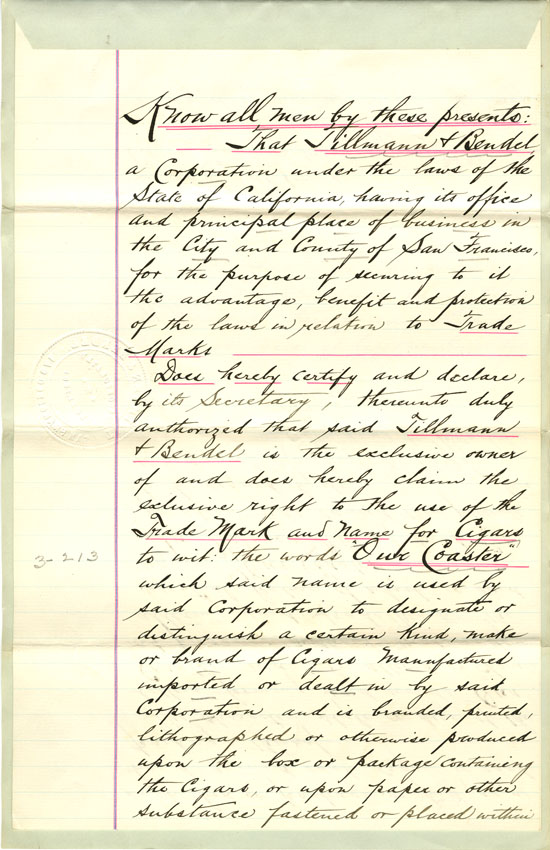 Know all men by these presents:
That Tillmann & Bendel
a Corporation under the laws of the
State of California, having its office
and principal place of business in
the City and County of San Francisco,
for the purpose of securing to it
the advantage, benefit and protection
of the laws in relation to Trade
Marks
Does hereby certify and declare,
by its Secretary, thereunto duly
authorized that said Tillmann
& Bendel is the exclusive owner
of and does hereby claim the
exlusive right to the use of the
Trade Mark and Name for Cigars
to wit: the words "Our Coaster"
which said name is used by
said Corporation to designate or
distinguish a certain kind, make
or brand of Cigars Manufactured
imported or dealt in by said
Corporation and is branded, printed,
lithographed or otherwise produced
upon the box or package containing
the Cigars, or upon paper or other
substance fastened or placed within
3-213